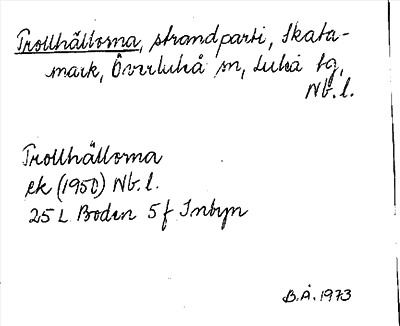 Trollhällorna, strandparti, Skata-
mark, Överluleå sn, Luleå tg,
Nb. l.
Trollhällorna
ek (1950) Nb. l.
25 L Boden 5 f Inbyn
B.Å. 1973